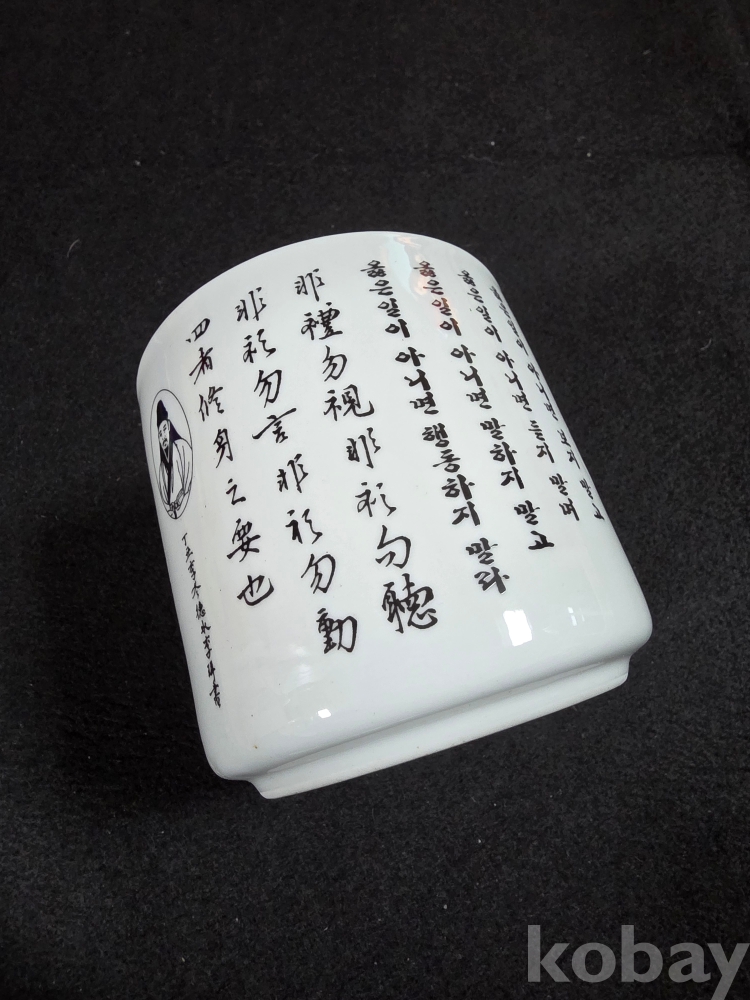 옳은일이 아니면 보지 말고
옳은일이 아니면 듣지 말며
옳은일이 아니면 말하지 말고
옳은일이 아니면 행동하지 말라
非禮勿視非礼勿聽
非礼勿言非礼勿動
四者修身之要也
丁丑季冬德水李珥書
kobay